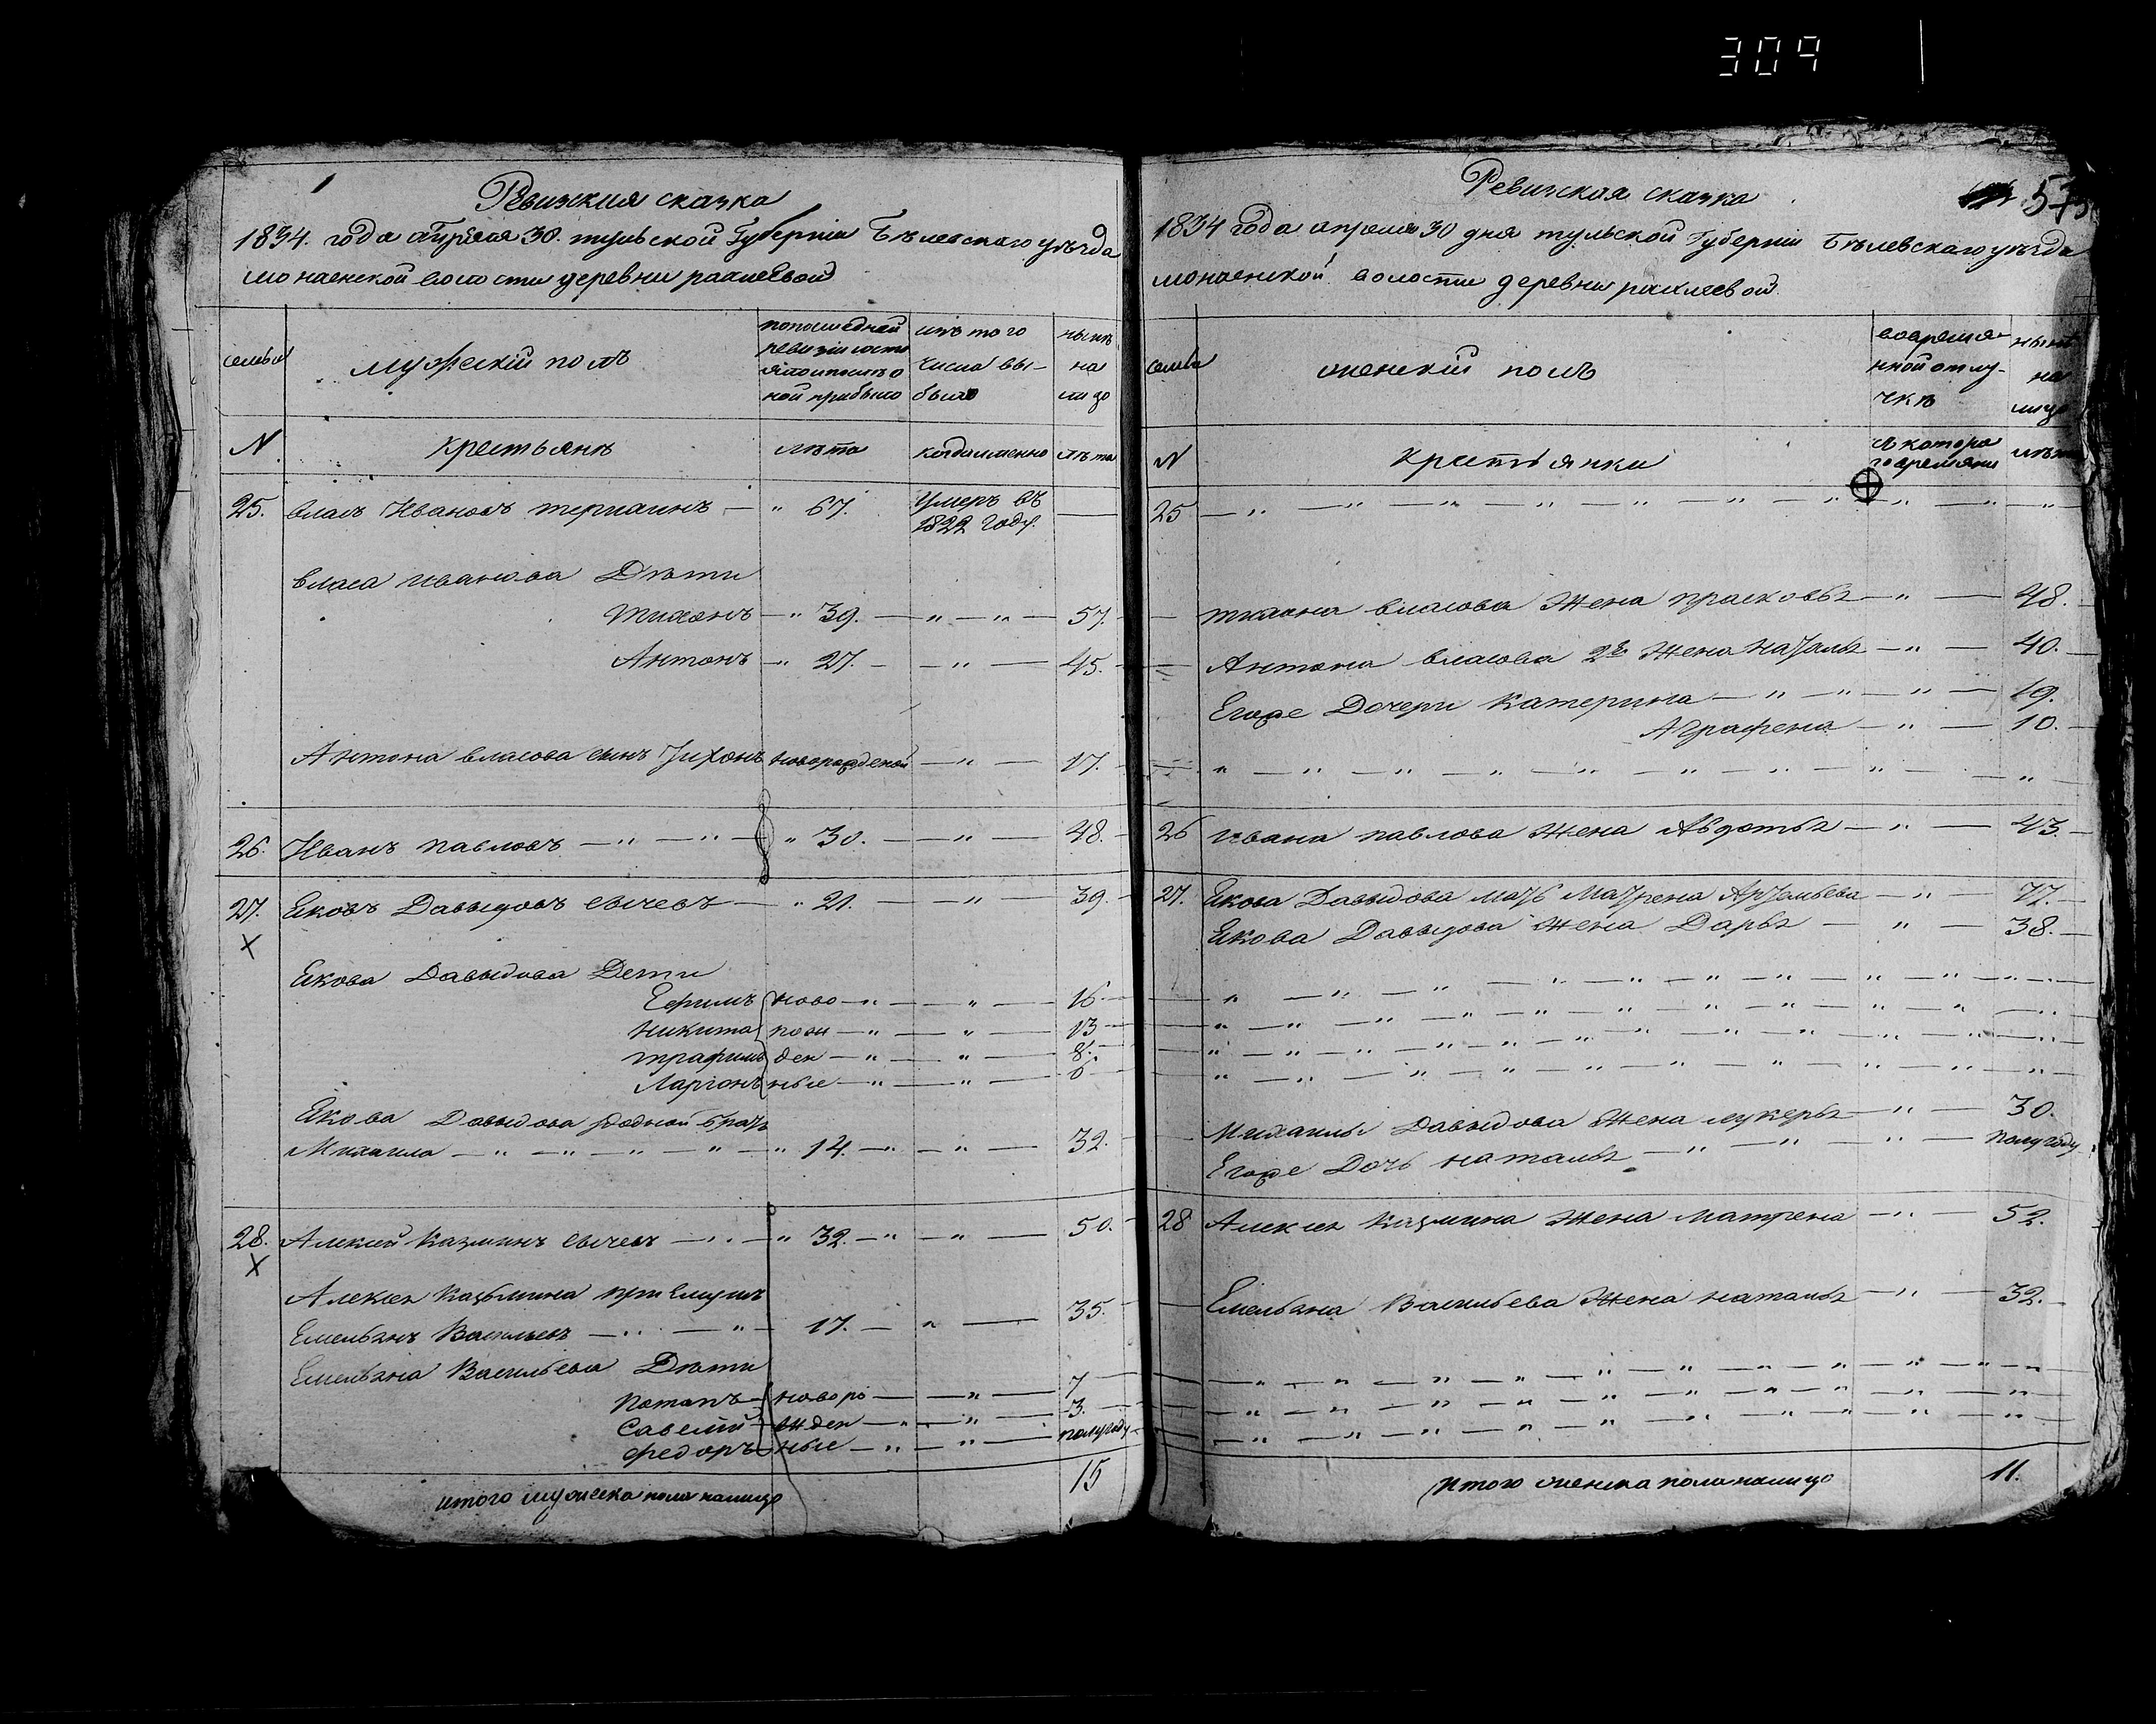 309
Ревизкия сказка
1834. года апреля 30. тульской Губерніи Бѣлевскаго уѣзда
волости деревни
семьи
мужескій полъ
попоследней ревизіи состояло и после оной прибыло
изъ того числа выбыло
нынѣ на лицо
N
крестьянѣ
лѣта
когда именно
лѣта
25. Власъ Ивановъ — " 67. Умеръ въ 1822 Году. —
Власа иванова Дѣти
Тихонъ — " 39. — " — " — 57.
Антонъ — " 27. — — " — 45.
Антона власова сынъ Тихонъ новорожденой — " — 17.
26. Иванъ павловъ — " — " — " 30. — — " — 48.
27. Яковъ Давыдовъ сычевъ — " 21. — — " — 39.
X
Якова Давыдова Дети
Ефимъ ново — " — — " — 16
никита рож — " — — " — 13
трафимъ ден — " — — " — 8.
Ларионъ ные — " — — " — 6
Якова Давыдова родной братъ
Михаила — " — " — " — " — " 14. — " — " — 32.
28. Алексей Казминъ сычевъ — " — " 32. — " — " — 50.
X
Алексея Казьмина приемышъ
Емельянъ Васильевъ — " — " — 17. — " — 35.
Емельяна Васильева Дѣти
Потапъ — новоро — — " — 7
Савелий — жден — " — " — 3.
федоръ — ные — " — " — полугоду
итого мужеска пола налицо 15
Ревизкая сказка
57
1834 года апреля 30 дня тульской Губерніи Бѣлевскаго уѣзда
волости деревни
семьи
женскій полъ
во временной отлучкѣ
нынѣ на лицо
N
крестьянки
съ котораго времяни
лѣта
25 — " — " — " — " — " — " — " — " — " — "
тихона власова Жена прасковья — " — 48.
Антона власова 2я Жена Наталья — " — 40.
Егоже Дочери Катерина — " — " — " — 19.
Аграфена — " — 10.
" — " — " — " — " — " — " — " — " — "
26 ивана павлова Жена Авдотья — " — 43.
27. Якова Давыдова мать Матрена — " — 77.
Якова Давыдова жена Дарья — " — 38.
" — " — " — " — " — " — " — " — "
" — " — " — " — " — " — " — " — "
" — " — " — " — " — " — " — " — "
" — " — " — " — " — " — " — " — "
Михаилы Давыдова Жена лукерья — " — 30.
Егоже Дочь наталья — " — " — " — полугоду
28 Алексея Казмина Жена матрена — " — 52.
Емельяна Васильева Жена наталья — " — 32.
— " — " — " — " — " — " — " — " — "
— " — " — " — " — " — " — " — " — "
— " — " — " — " — " — " — " — " — "
итого женска пола налицо 11.